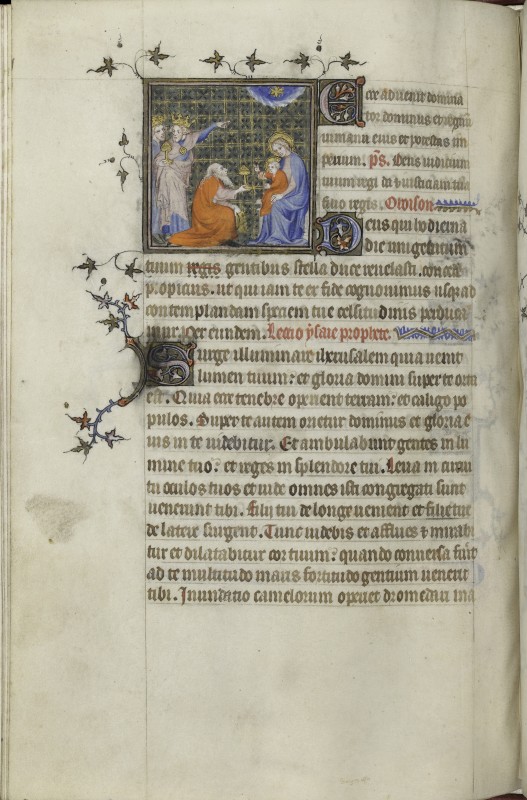 Ecce aduenit domina
tor dominus et regnũ
in manu eius et potestas im
perium. p̃s. Deus iudicium
tuum regi da et iusticiam tuã
filio regis. Oroison
Deus qui hodierna
die unigenitum
tuum regis gentibus stella duce reuelasti. concede
propicius. ut qui iam te ex fide cognouimus usq; ad
contemplandam speciem tue celsitudinis perduca
mur. per eundem. Lectio ysaie prophete.
Surge illuminare iherusalem quia uenit
lumen tuum: et gloria domini super te orta
est. Quia ecce tenebre operient terram: et caligo po
pulos. Super te autem orietur dominus et gloria e
ius in te uidebitur. Et ambulabunt gentes in lu
mine tuo: et reges in splendore tui. Leua in circui
tu oculos tuos et uide omnes isti congregati sunt
uenerunt tibi. Filij tui de longe uenient et filie tue
de latere surgent. Tunc uidebis et afflues et mirabi
tur et dilatabitur cor tuum: quando conuersa fuĩt
ad te multitudo maris fortitudo gentium uenerit
tibi. Inundatio camelorum operiet dromedarii ma